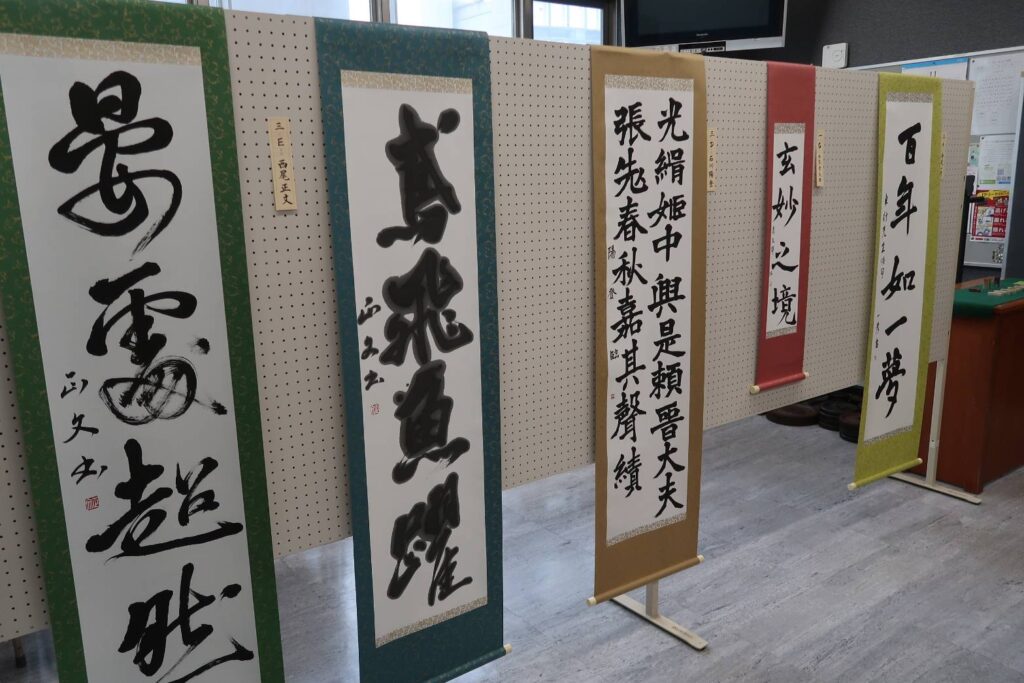 晏處超然
正文書
三E 西尾正文
鳶飛魚躍
正文書
光緝姬中興是頼晉大夫
張老春秋嘉其聲績
玄妙之境
百年如一夢